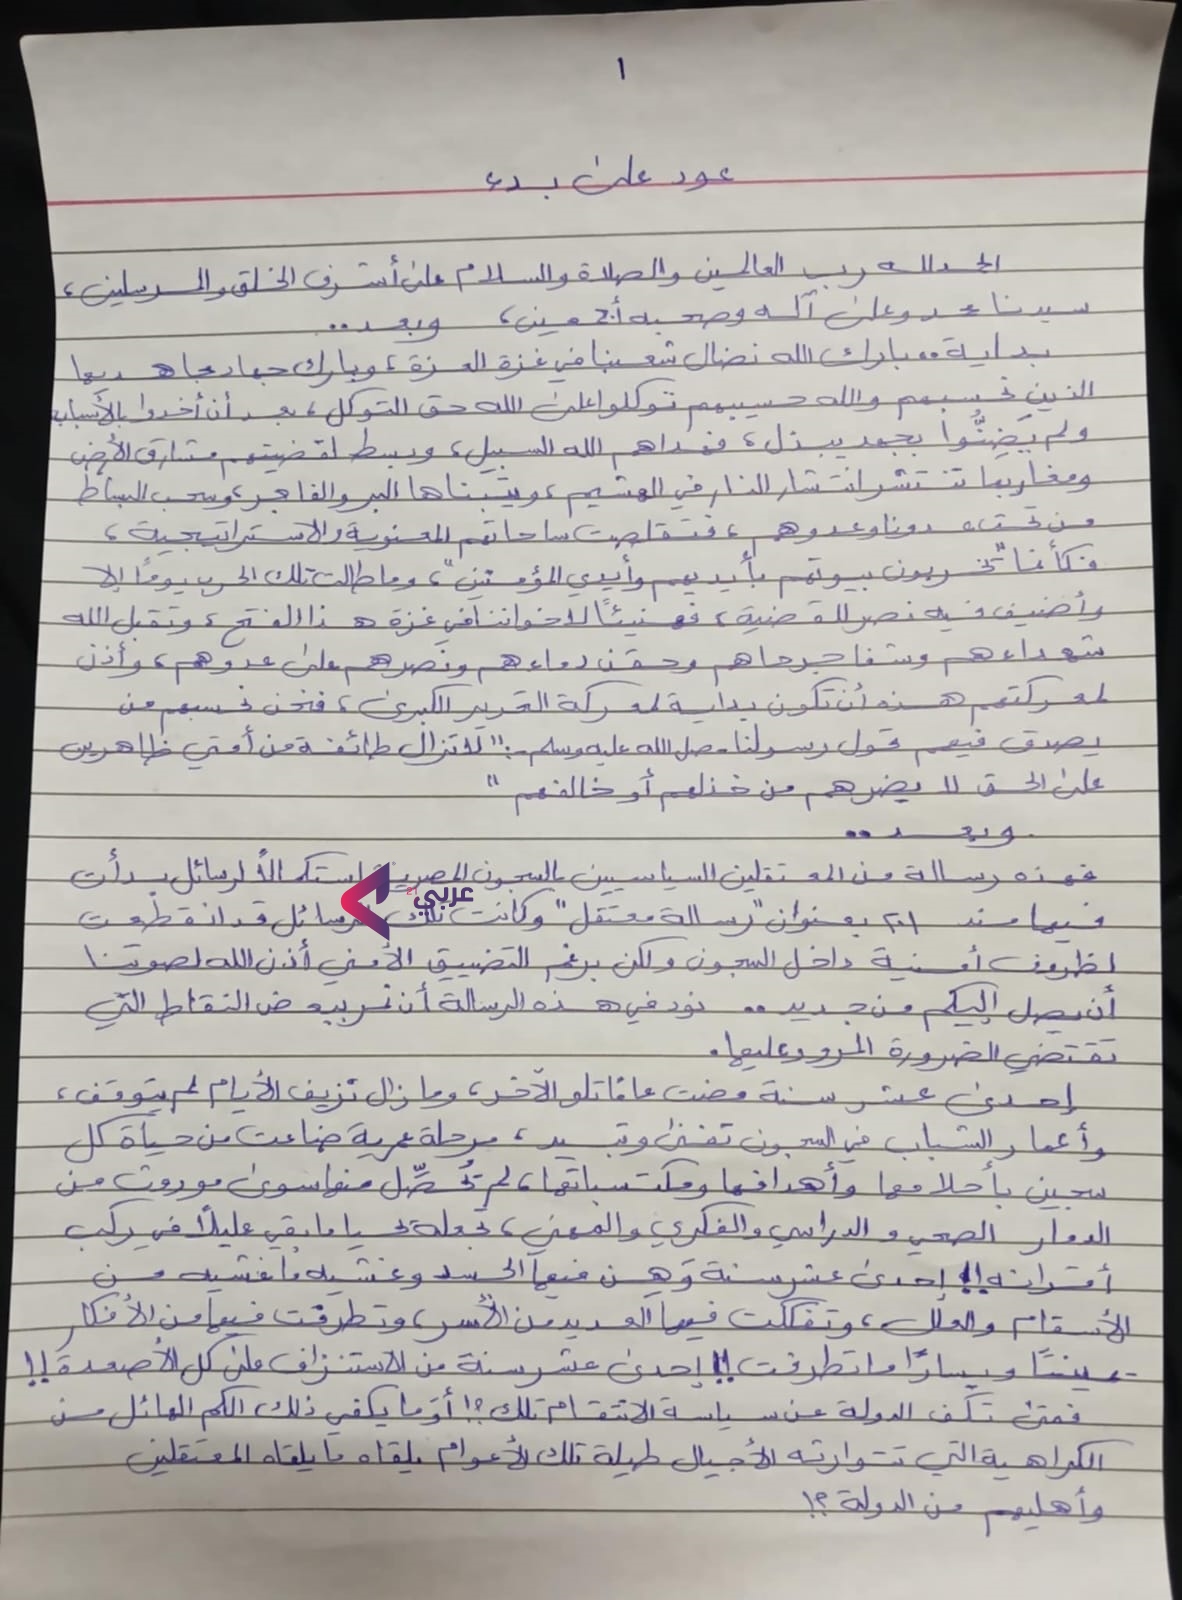 ١
عود على بدء
الحمد لله رب العالمين والصلاة والسلام على أشرف الخلق والمرسلين،
سيدنا محمد وعلى آله وصحبه أجمعين، وبعد..
بداية.. بارك الله نضال شعبنا في غزة العزة، وبارك جهاد مجاهديها
الذين نحسبهم والله حسيبهم توكلوا على الله حق التوكل، بعد أن أخذوا بالأسباب
ولم يَضِنُّوا بجهد يبذل، فهداهم الله السبيل، وبسط لقضيتهم مشارق الأرض
ومغاربها تنتشر انتشار النار في الهشيم، ويتبناها البر والفاجر، وسحب البساط
من تحت عدونا وعدوهم، فتقلصت ساحاتهم المعنوية والاستراتيجية،
فكأنما "يخربون بيوتهم بأيديهم وأيدي المؤمنين"، وما طالت تلك الحرب يومًا إلا
وأضيف فيه نصر للقضية، فهنيئًا لإخواننا في غزة هذا الفتح، وتقبل الله
شهداءهم وشفا جرحاهم وحقن دماءهم ونصرهم على عدوهم، وأذن
لمعركتهم هذه أن تكون بداية لمعركة التحرير الكبرى، فنحن نحسبهم من
يصدق فيهم قول رسولنا صلى الله عليه وسلم: "لا تزال طائفة من أمتي ظاهرين
على الحق لا يضرهم من خذلهم أو خالفهم"
وبعد..
فهذه رسالة من المعتقلين السياسيين بالسجون المصرية استكمالًا لرسائل بدأت
فيما منذ بعنوان "رسالة معتقل" وكانت تلك الرسائل قد انقطعت
عربي21
لظروف أمنية داخل السجون ولكن برغم التضييق الأمني أذن الله لصوتنا
أن يصل إليكم من جديد.. نود في هذه الرسالة أن نمر ببعض النقاط التي
تقتضي الضرورة المرور عليها.
إحدى عشر سنة مضت عامًا تلو الآخر، وما زال نزيف الأيام لم يتوقف،
وأعمار الشباب في السجون تفنى وتبيد، مرحلة عمرية ضاعت من حياة كل
سجين بأحلامها وأهدافها ومكتسباتها، لم تُحصِّل منها سوى موروث من
الدمار الصحي والدراسي والفكري والمهني، تجعله يحيا ما بقي عليلًا في ركب
أقرانه!! إحدى عشر سنة وَهِن فيها الجسد وغشيه ما غشيه من
الأسقام والعلل، وتفككت فيها العديد من الأسر، وتطرفت فيها من الأفكار
يمينًا ويسارًا ما تطرفت!! إحدى عشر سنة من الاستنزاف على كل الأصعدة!!
فمتى تكف الدولة عن سياسة الانتقام تلك؟! أوَما يكفي ذلك الكم الهائل من
الكراهية التي تتوارثه الأجيال طيلة تلك الأعوام بلقاه ما يلقاه المعتقلين
وأهليهم من الدولة؟!